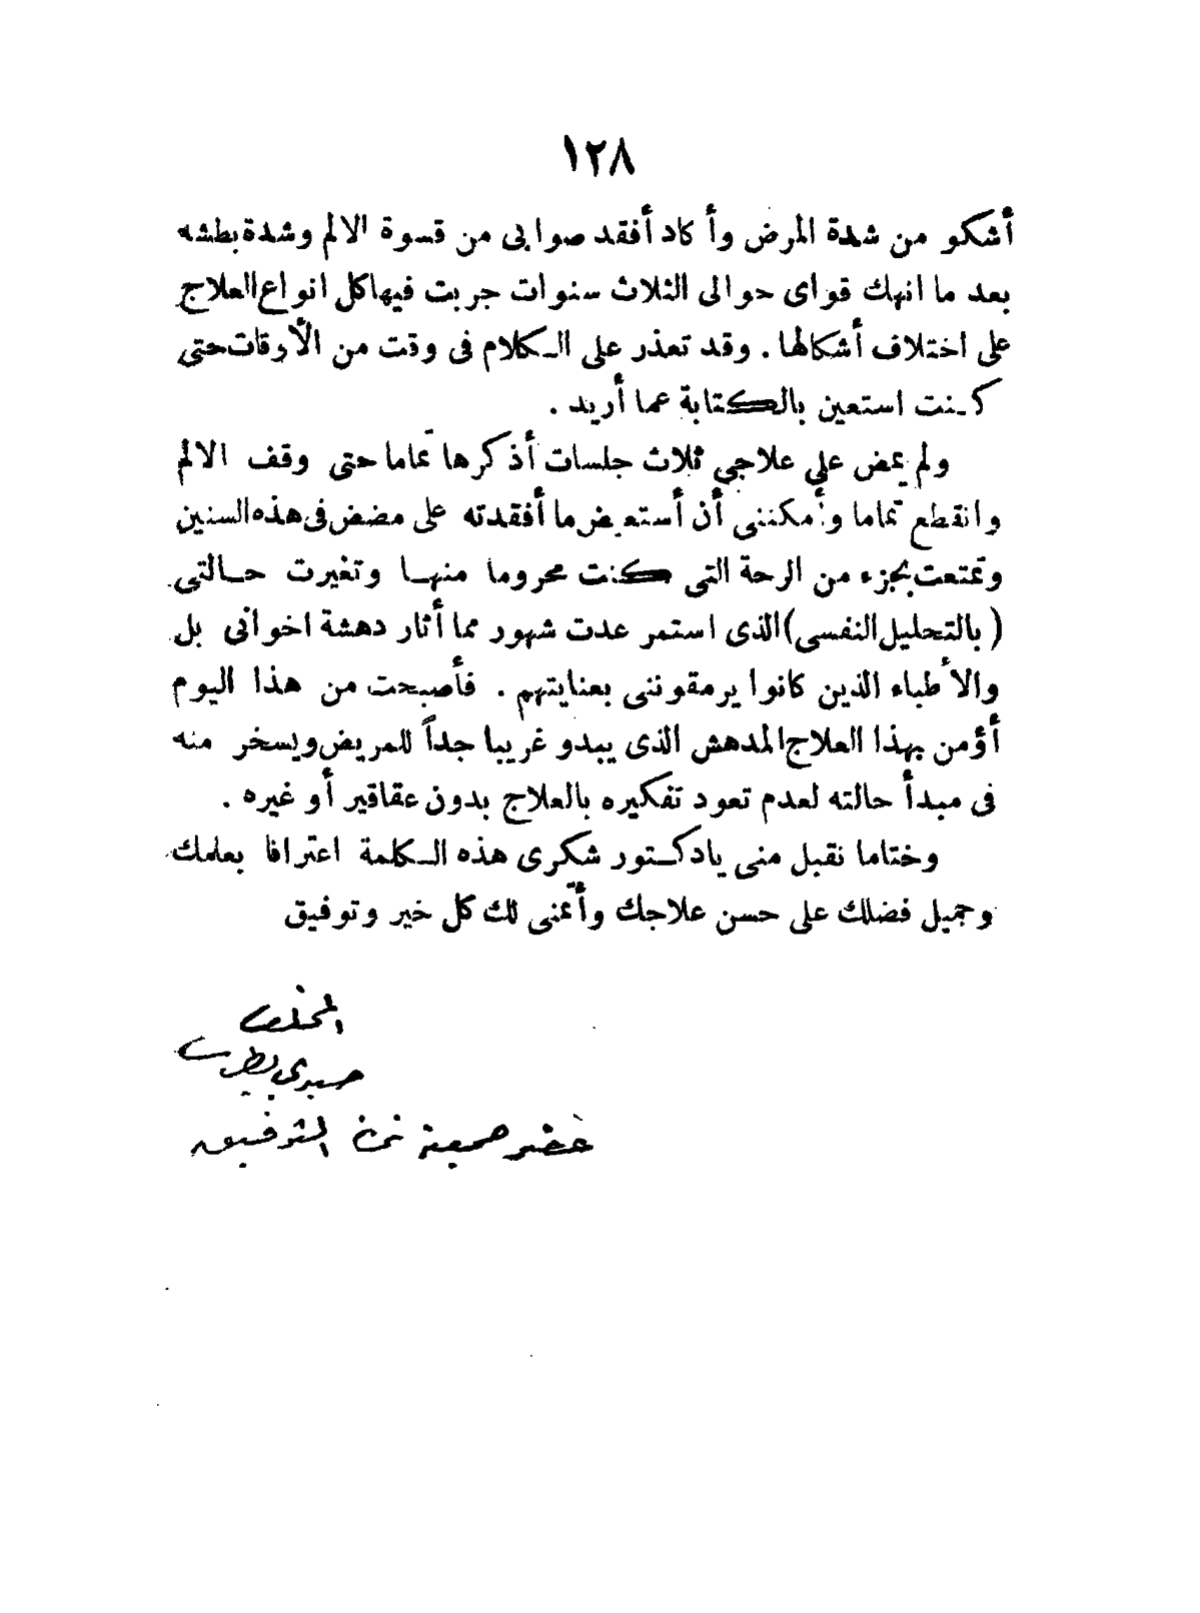 ١٢٨
أشكو من شدة المرض وأكاد أفقد صوابى من قسوة الالم وشدة بطشه
بعد ما انهك قواى حوالى الثلاث سنوات جربت فيها كل انواع العلاج
على اختلاف أشكالها . وقد تعذر على الـكلام فى وقت من الأوقات حتى
كـنت استعين بالكتابة عما أريد .
ولم يمض على علاجي ثلاث جلسات أذكرها تماما حتى وقف الالم
وانقطع تماما وأمكننى أن أستعيض ما أفقدته على مضض فى هذه السنين
وتمتعت بجزء من الرحة التى كنت محروما منهـا وتغيرت حـالتى
( بالتحليل النفسى ) الذى استمر عدت شهور مما أثار دهشة اخوانى بل
والأطباء الذين كانوا يرمقوننى بعنايتهم . فأصبحت من هذا اليوم
أؤمن بهذا العلاج المدهش الذى يبدو غريبا جداً للمريض ويسخر منه
فى مبدأ حالته لعدم تعود تفكيره بالعلاج بدون عقاقير أو غيره .
وختاما نقبل منى يادكـتور شكرى هذه الـكلمة اعترافا بعلمك
وجميل فضلك على حسن علاجك وأتمنى لك كل خير وتوفيق
المخلص
صبرى بطرس
عضو جمعية ثمرة التوفيق